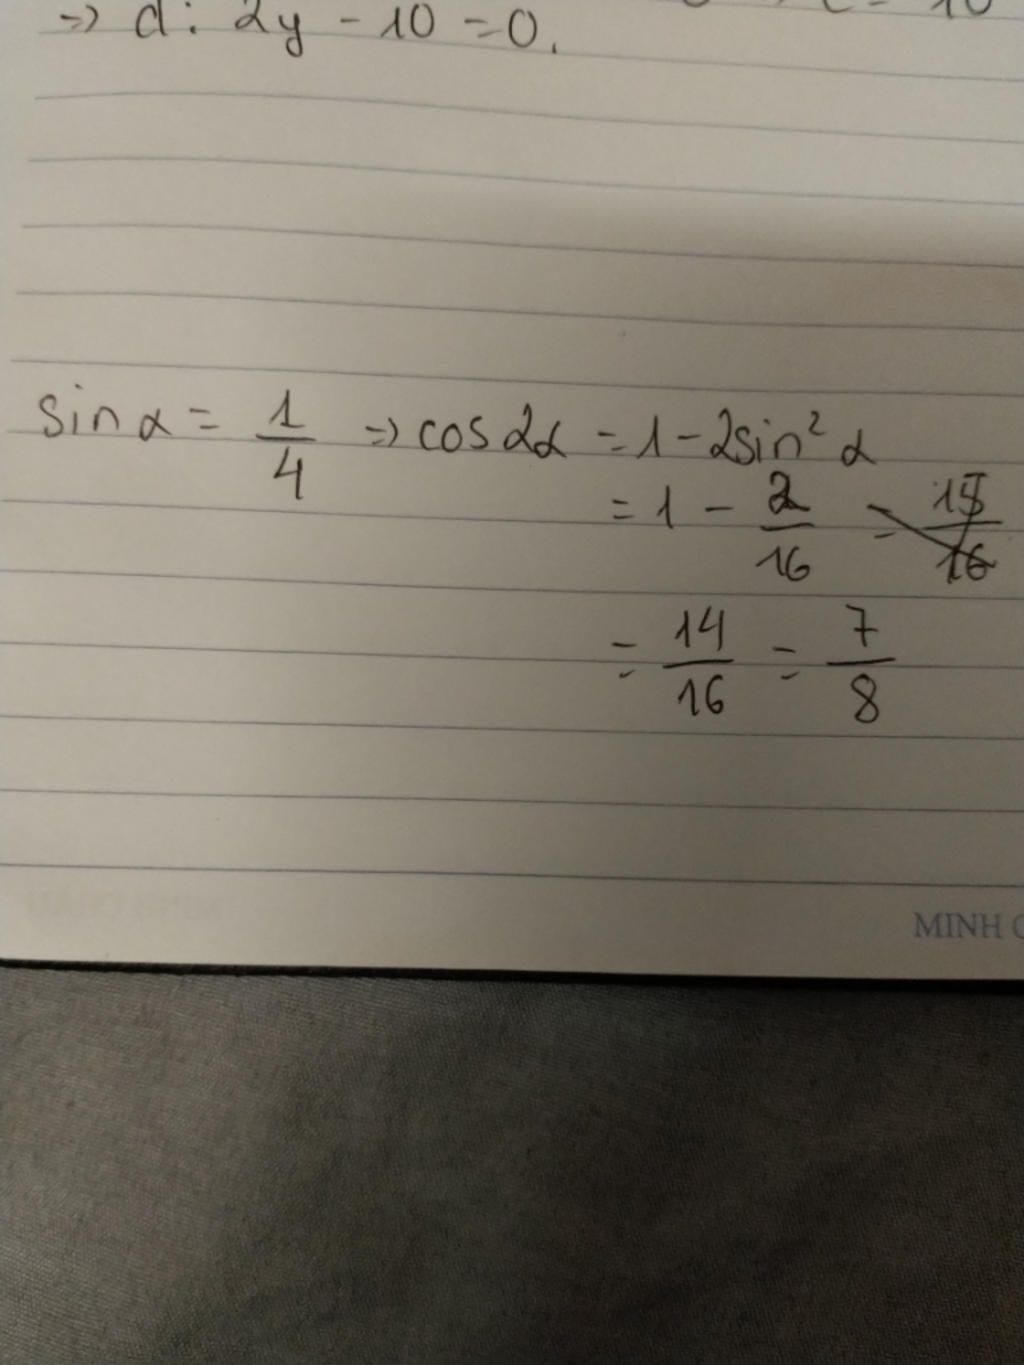 => d: 2y - 10 = 0.
sin α = 1/4 => cos 2α = 1 - 2sin² α
= 1 - 2/16 = 15/16
= 14/16 = 7/8
MINH